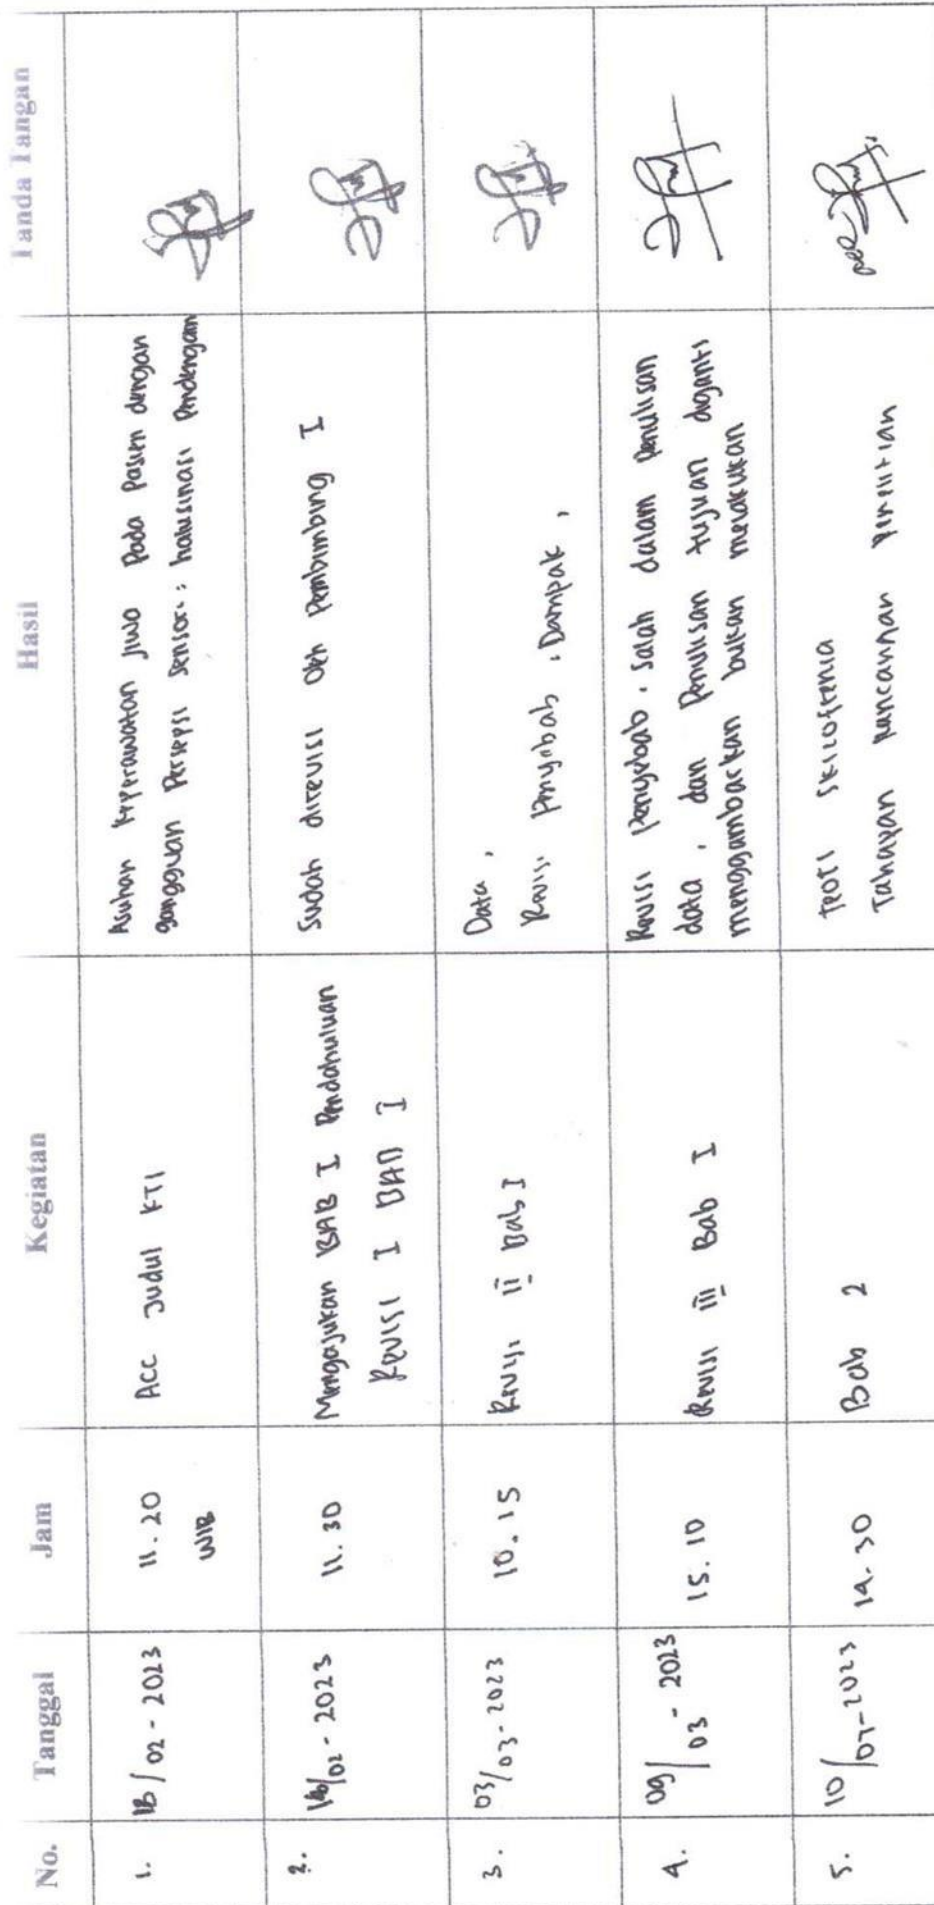 No. Tanggal Jam Kegiatan Hasil Tanda Tangan
1. 13/02 - 2023 11.20 WIB Acc Judul KTI
Asuhan Keperawatan Jiwa Pada Pasien dengan
gangguan Persepsi Sensori : halusinasi Pendengaran
2. /02 - 2023 11.30
Mengajukan BAB I Pendahuluan
Revisi I BAB I
Sudah direvisi Oleh Pembimbing I
3. 03/03 - 2023 10.15 Revisi II Bab I
Data,
Revisi Penyebab, Dampak,
4. 09/03 - 2023 15.10 Revisi III Bab I
Revisi Penyebab, Salah dalam Penulisan
data, dan Penulisan tujuan diganti
menggambarkan bukan melakukan
5. 10/ -2023 14.30 Bab 2
Teori Skizofrenia
Tahapan Rancangan Penelitian